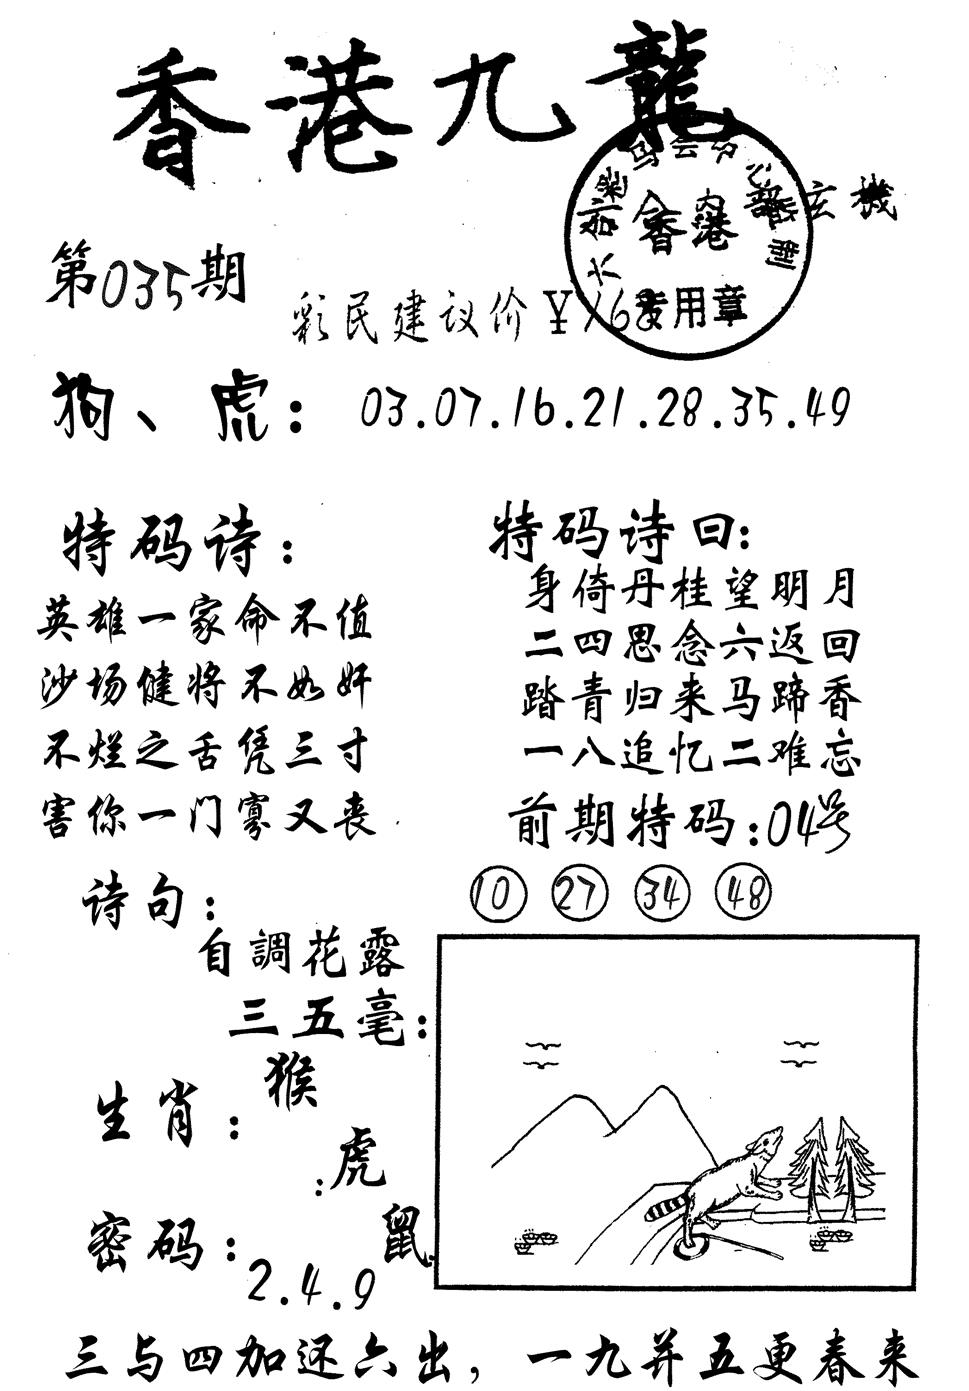 香港九龍
玄機
第035期
彩民建议价¥168
香港
专用章
狗、虎：03.07.16.21.28.35.49
特码诗：
英雄一家命不值
沙场健将不如奸
不烂之舌凭三寸
害你一门寡又丧
特码诗曰：
身倚丹桂望明月
二四思念六返回
踏青归来马蹄香
一八追忆二难忘
前期特码：04号
10 27 34 48
诗句：
自調花露
三五毫：
生肖：猴
：虎
鼠
密码：2.4.9
三与四加还六出，一九并五更春来